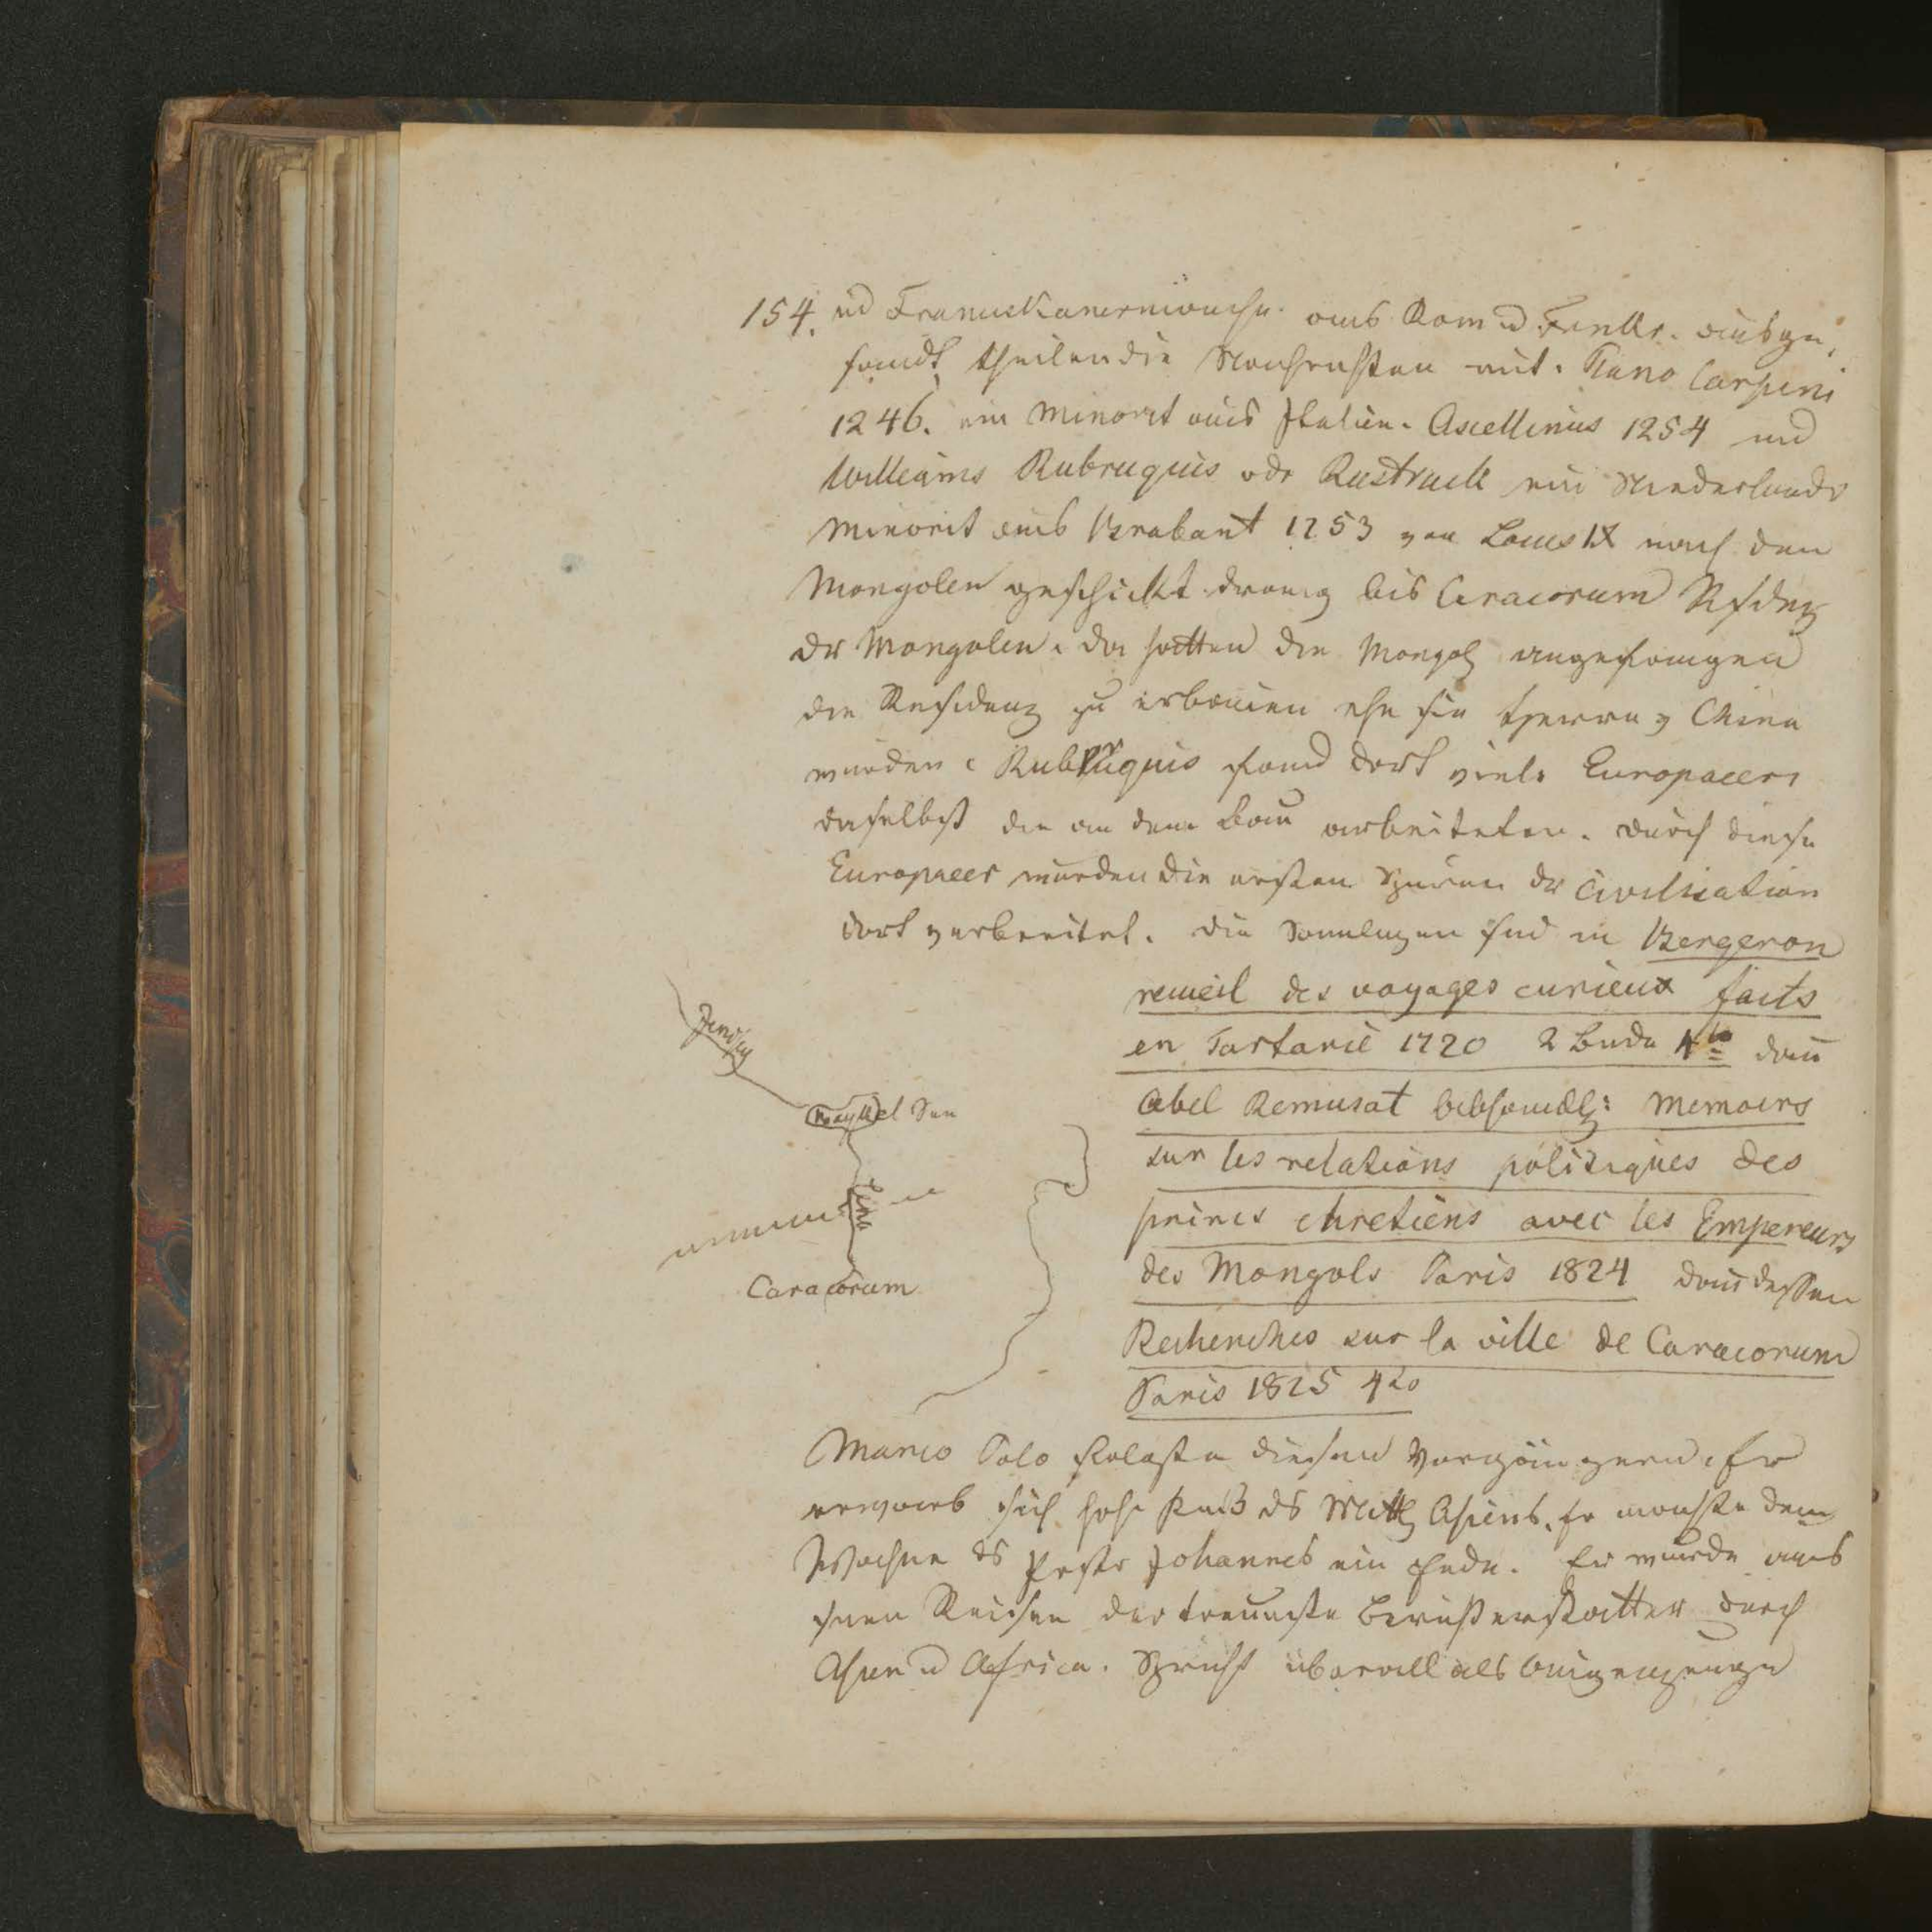 154. ud Franciskanermönche aus Rom u Frankr. ausge,
sandt, theilen die Nachrichten mit. Plano Carpini
1246. ein Minorit aus Italien. Ascellinus 1254 und
Williams Rubruquis oder Rustruck ein Niederländr
Minorit aus Brabant 1253 von Louis IX nach den
Mongolen geschickt drang bis Caracorum Residenz
der Mongolen. da hatten die Mongol angefangen
die Residenz zu erbauen ehe sie Herren v China
wurden. Rubruquis fand dort viele Europaeer
daselbst die an dem Bau arbeiteten. durch diese
Europaeer wurden die ersten Spuren der Civilisation
dort verbreitet. die Samlugen sind in Bergeron
recueil des voyages curieux faits
en Tartarie 1720 2 Bnde 4to dan
Abel Remusat Memoirs
sur les relations politiques des
princes chretiens avec les Empereurs
des Mongols Paris 1824 dan dessen
Recherches sur la ville de Caracorum
Paris 1825 4to
Jenisey
Baykel See
Lena
Caracorum
Marco Polo folgte diesen Vorgängern. Er
erwarb sich hohe ds Mittl Asiens. Er machte dem
Wahne ds Pristr Johannes ein Ende. Er wurde aus
seinen Reisen der treueste Berichterstatter durch
Asien u Africa. Spricht überall als Augenzeuge